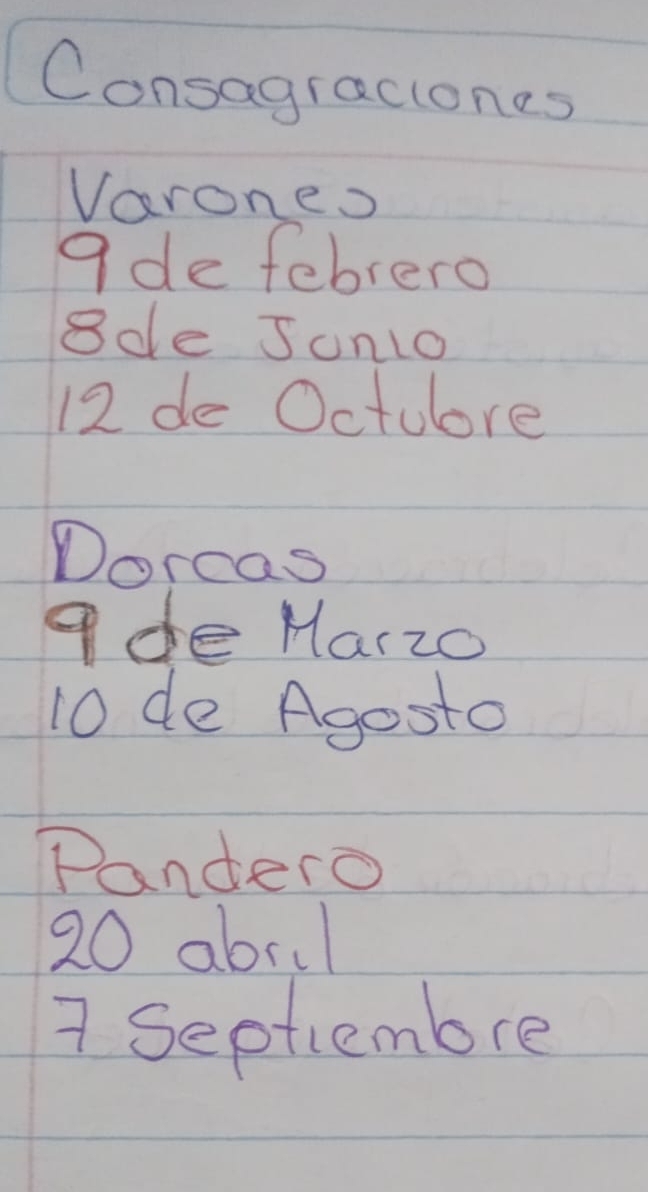 Consagraciones
Varones
9 de febrero
8 de Junio
12 de Octubre
Dorcas
9 de Marzo
10 de Agosto
Pandero
20 abril
7 Septiembre